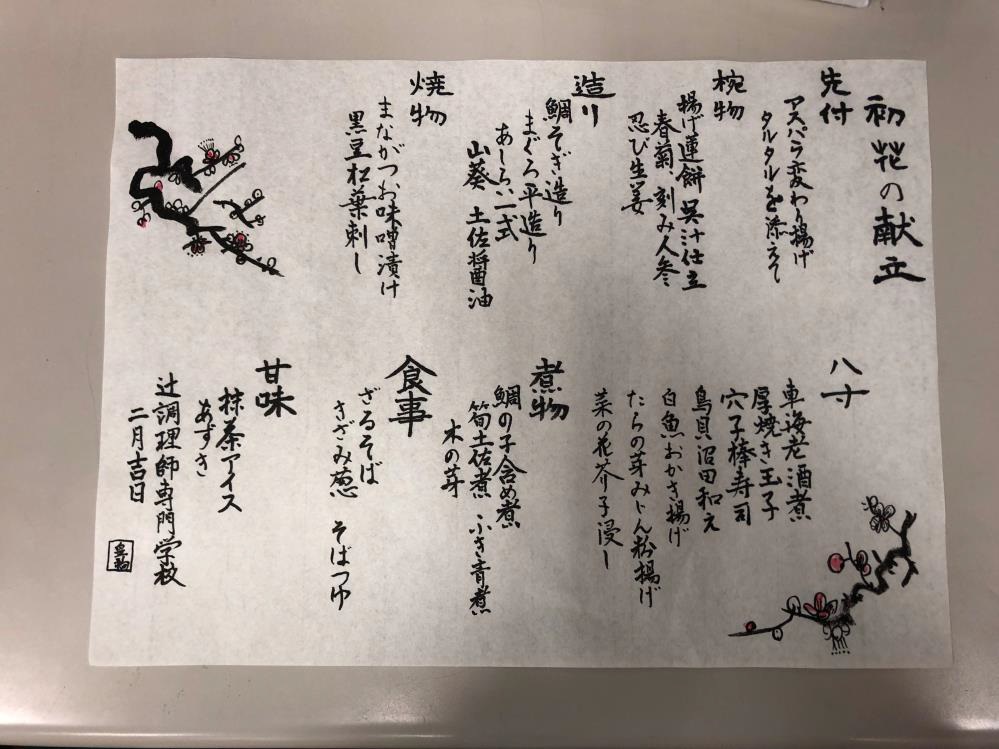 初花の献立
先付
アスパラ変わり揚げ
タルタルを添えて
椀物
揚げ蓮餅 呉汁仕立
春菊、刻み人参
忍び生姜
造り
鯛そぎ造り
まぐろ平造り
あしらい一式
山葵 土佐醤油
焼物
まながつお味噌漬け
黒豆松葉刺し
八寸
車海老酒煮
厚焼き玉子
穴子棒寿司
鳥貝沼田和え
白魚おかき揚げ
たらの芽みじん粉揚げ
菜の花芥子浸し
煮物
鯛の子含め煮
筍土佐煮 ふき青煮
木の芽
食事
ざるそば
きざみ葱 そばつゆ
甘味
抹茶アイス
あずき
辻調理師専門学校
二月吉日